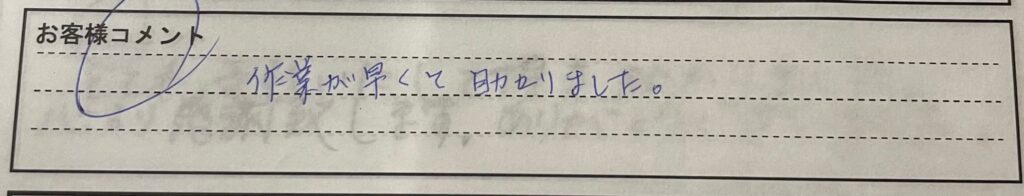 お客様コメント
作業が早くて助かりました。